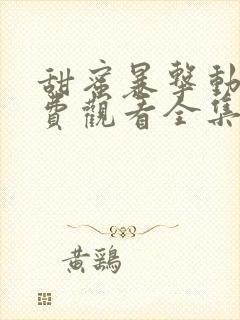 甜蜜暴擊動
費觀看全集
黃鷄